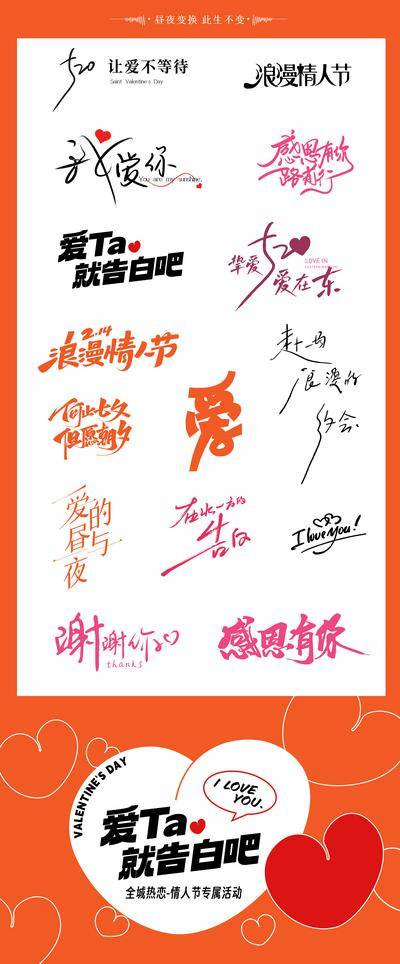 昼夜变换 此生不变
520 让爱不等待
Saint Valentine's Day
浪漫情人节
我爱你
You are my sunshine.
感恩有你
一路有行
爱Ta
就告白吧
挚爱 520
LOVE IN
爱在东
2.14
浪漫情人节
赴一场
浪漫的
约会
何止七夕
但愿朝夕
爱
爱的
昼与
夜
在水一方的
告白
I love you!
谢谢你
thanks
感恩有你
VALENTINE'S DAY
I LOVE
YOU.
爱Ta
就告白吧
全城热恋-情人节专属活动